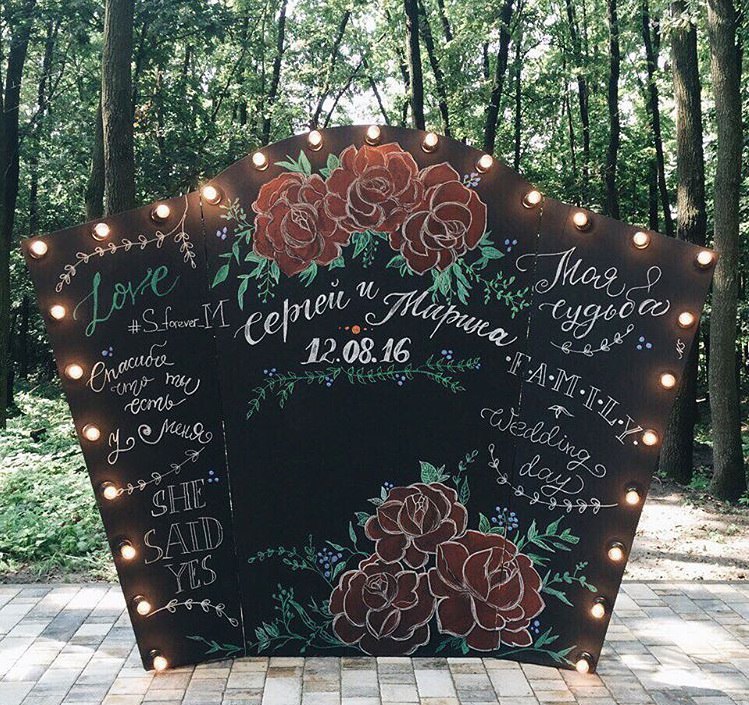 Love
#S_forever_M
Спасибо
что ты
есть
у меня
SHE
SAID
YES
Сергей и Марина
12.08.16
Моя
судьба
F·A·M·I·L·Y·
Wedding
day